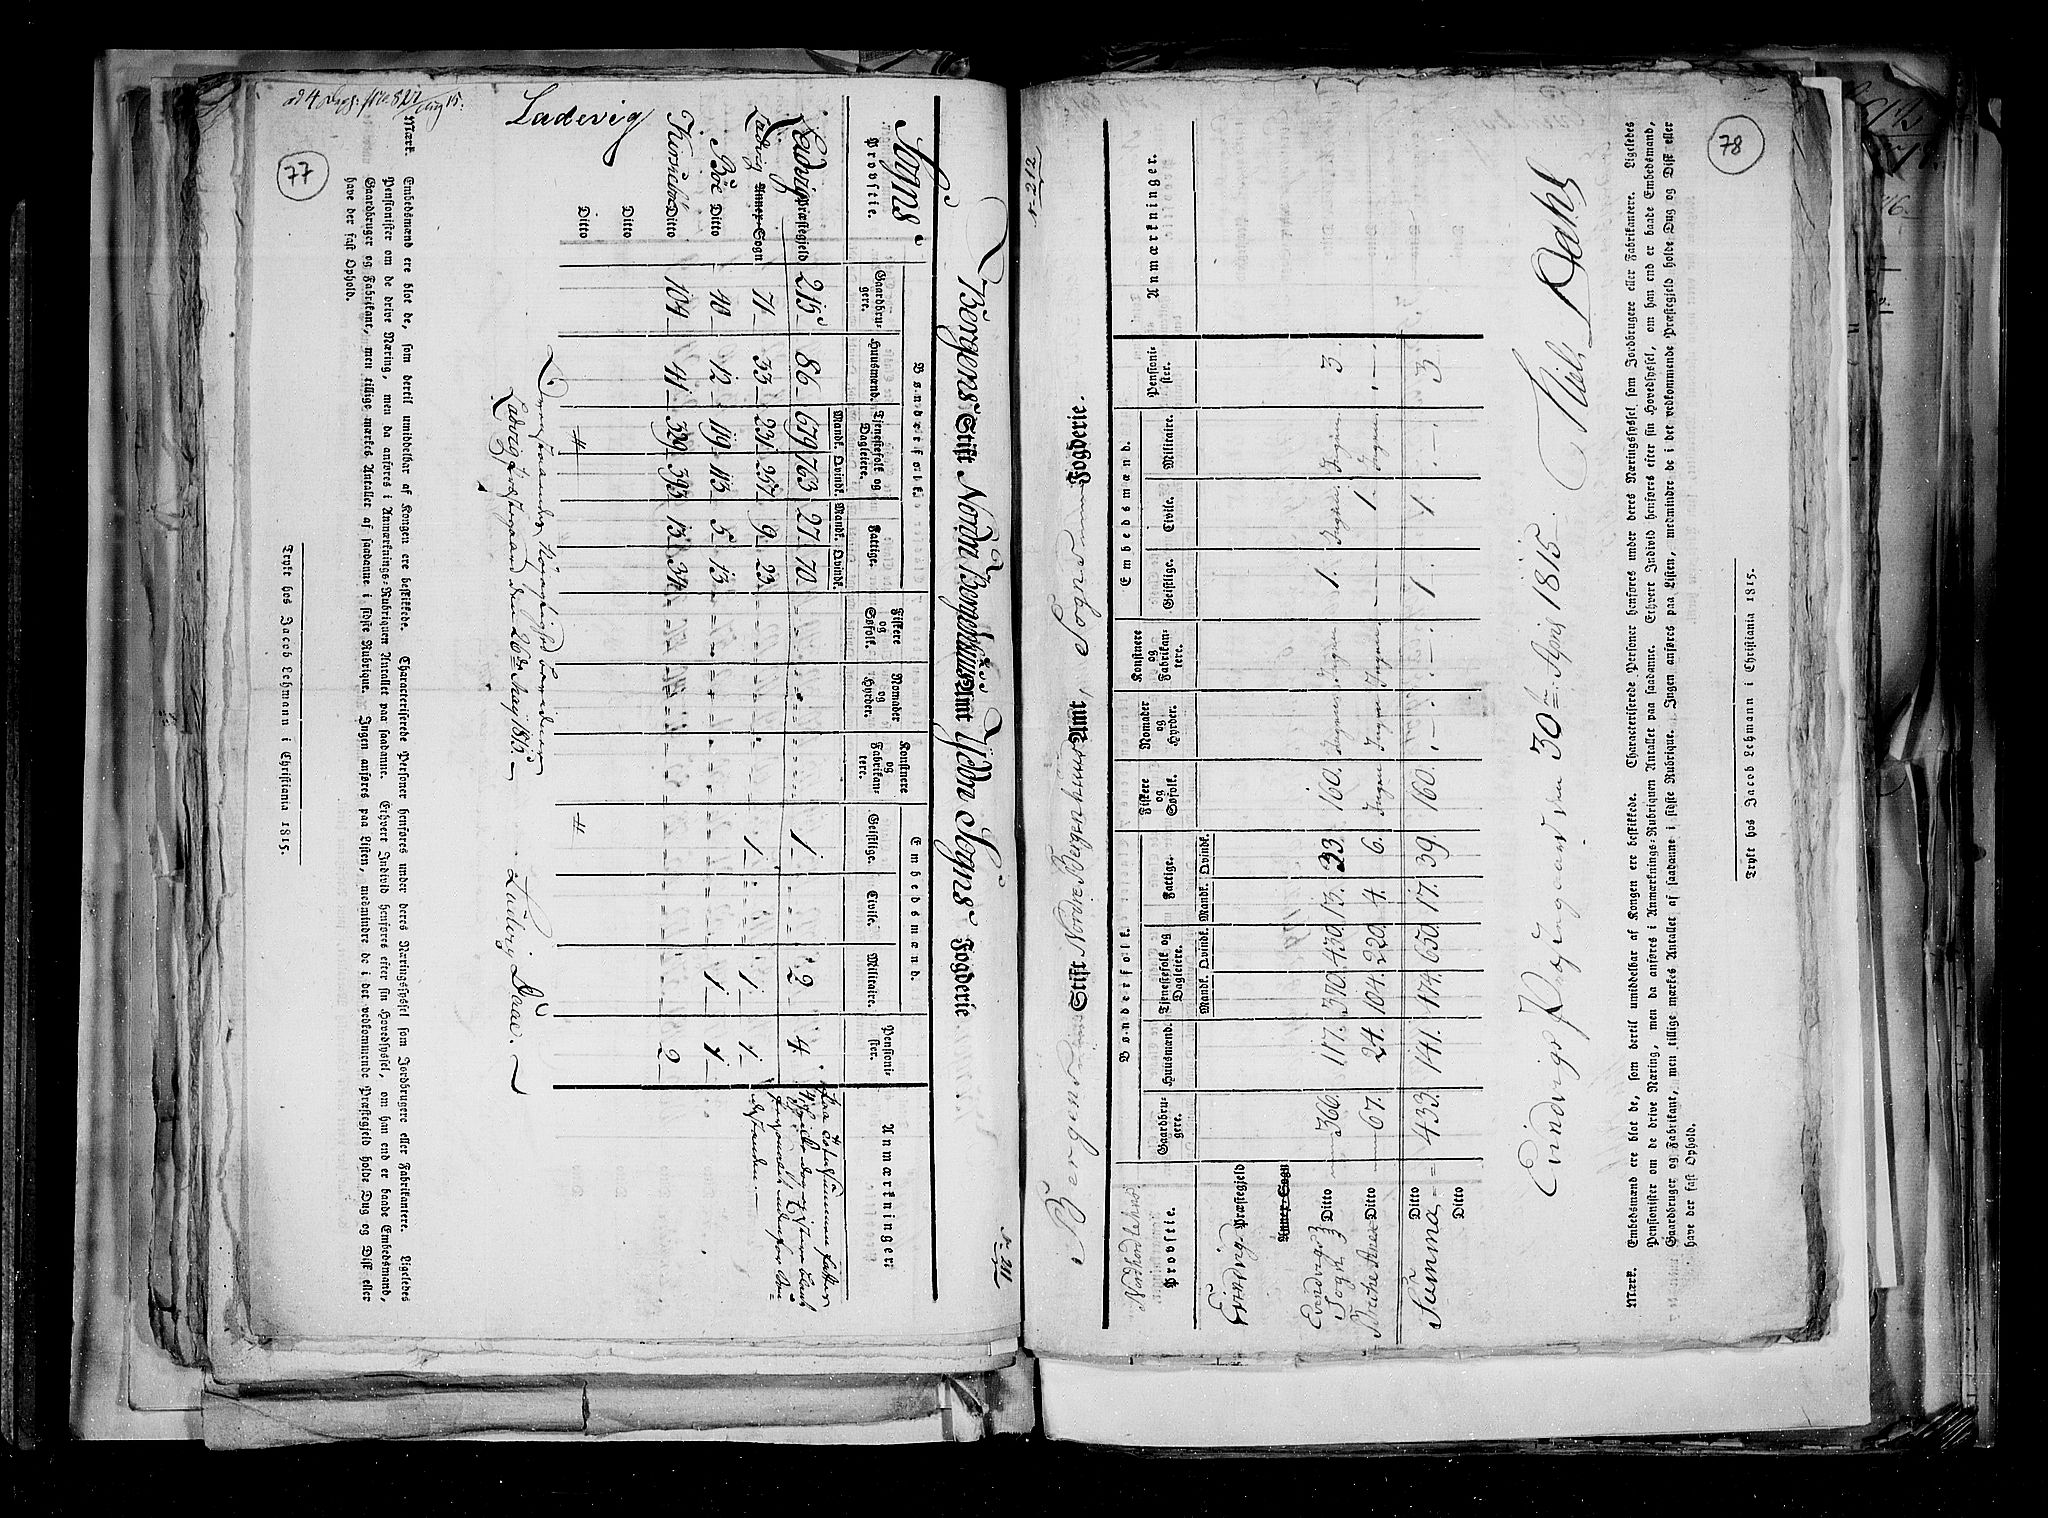 77
Ladevig
No 211
Bergens Stift Nordre Bergenhuus Amt Ytre Sogns Fogderie
Sogns Provstie.
Bønderfolk.
Embedsmænd.
Gaardbrugere.
Huusmænd.
Tjenestfolk og Dagleiere.
Mandk. Qvindk.
Fattige.
Mandk. Qvindk.
Fiskere og Søfolk.
Nomader og Hyrder.
Konstnere og Fabrikantere.
Geistlige.
Civile.
Militaire.
Pensionister.
Anmærkninger.
Ladvig Præstegjeld 215 86 679 763 27 70 1 2 4.
Ladvig Annex-Sogn 71 33 231 257 9 23 1 1 1
Böe Ditto 40 12 119 113 5 13 1 1
Kirkeböe Ditto 104 41 329 393 13 34 2
Ditto
Ditto
Ladvig Præstegaard den 26de May 1815
Ludvig Daae.
Mærk. Embedsmænd ere blot de, som dertil umiddelbar af Kongen ere beskikkede. Characteriserede Personer henføres under deres Næringssyssel som Jordbrugere eller Fabrikantere. Ligeledes
Pensionister om de drive Næring, men da anføres i Anmærknings-Rubriquen Antallet paa saadanne. Ethvert Individ henføres efter sin Hovedsyssel, om han end er baade Embedsmand,
Gaardbruger og Fabrikant, men tillige mærkes Antallet af saadanne i sidste Rubrique. Ingen anføres paa Listen, medmindre de i det vedkommende Præstegjeld holde Dug og Disk eller
have der fast Ophold.
Trykt hos Jacob Lehmann i Christiania 1815.
78
No 212
Bergens Stift Nordre Bergenhuus Amt, Sogns Fogderie.
Nordhordlehns Provstie.
Bønderfolk.
Embedsmænd.
Gaardbrugere.
Huusmænd.
Tjenestefolk og Dagleiere.
Mandk. Qvindk.
Fattige.
Mandk. Qvindk.
Fiskere og Søfolk.
Nomader og Hyrder.
Konstnere og Fabrikantere.
Geistlige.
Civile.
Militaire.
Pensionister.
Anmærkninger.
Evindvig Præstegjeld
Annex-Sogn
Evindvigs Sogn Ditto 366. 117. 370. 430. 13. 33. 160. Ingen Ingen 1. Ingen Ingen 3.
Brekke Ditto 67. 24. 104. 220. 4. 6. Ingen Ingen Ingen 1. Ingen
Summa Ditto 433. 141. 474. 650. 17. 39. 160. 1. 1. 3
Ditto
Evindvigs Præstegaard den 30te April 1815.
Niels Dahl
Mærk. Embedsmænd ere blot de, som dertil umiddelbar af Kongen ere beskikkede. Characteriserede Personer henføres under deres Næringssyssel, som Jordbrugere eller Fabrikantere. Ligeledes
Pensionister om de drive Næring, men da anføres i Anmærknings-Rubriquen Antallet paa saadanne. Ethvert Individ henføres efter sin Hovedsyssel, om han end er baade Embedsmand,
Gaardbruger og Fabrikant, men tillige mærkes Antallet af saadanne i sidste Rubrique. Ingen anføres paa Listen, medmindre de i det vedkommende Præstegjeld holde Dug og Disk eller
have der fast Ophold.
Trykt hos Jacob Lehmann i Christiania 1815.